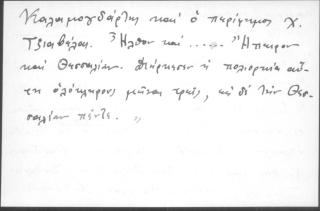 Καλαμογδάρτης καὶ ὁ περίφημος Χ.
Τζιαβέλας. Ἦλθον καὶ ...... Ἤπειρον
καὶ Θεσσαλίαν. Διήρκησεν ἡ πολιορκία αὕ-
τη ὁλοκλήρους μῆνας τρεῖς, καὶ δὲ τὴν Θεσ-
σαλίαν πέντε. „